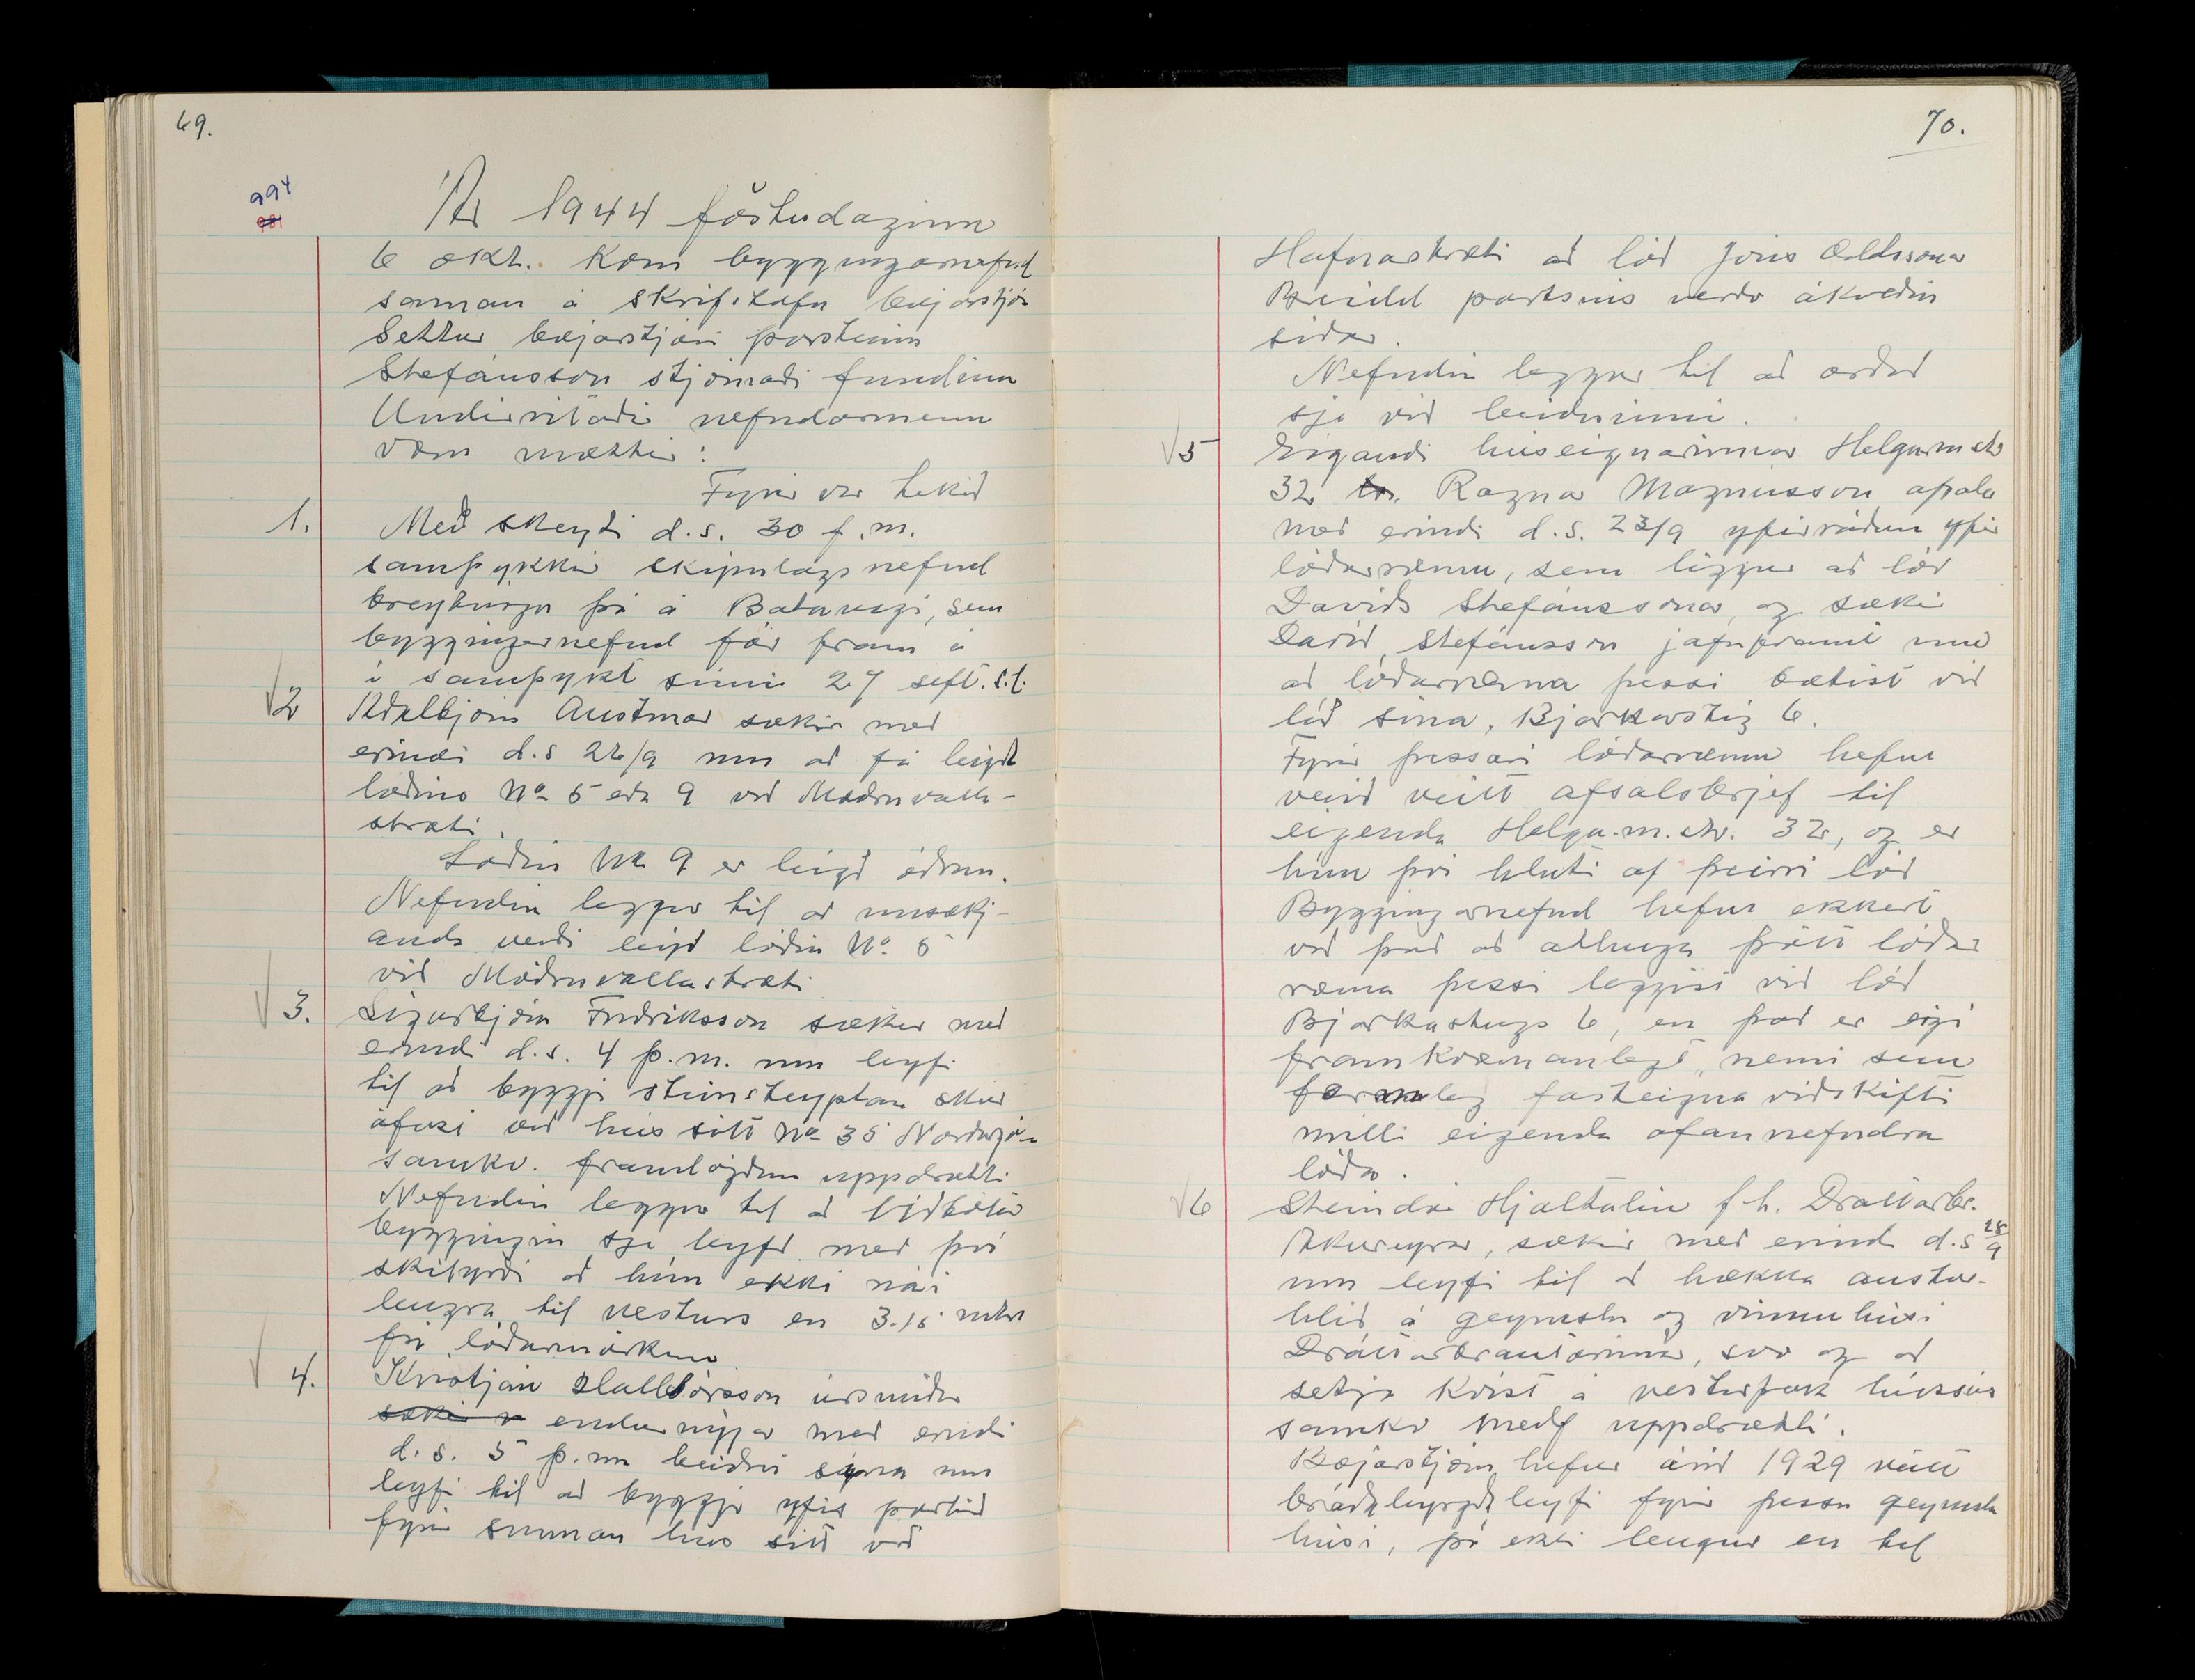 69.
994
981
Ár 1944 föstudaginn
6 okt. kom byggingarnefnd
saman á skrifstofu bæjarstjór
Settur bæjarstjóri Þorsteinn
Stefánsson stjórnaði fundinum
Undirritaðir nefndarmenn
voru mættir:
Fyrir var tekið
1. Með skeyti d.s. 30 f.m.
samþykkir skipulagsnefnd
breytingu þá á Batavegi, sem
byggingarnefnd fór fram á
í samþykt sinni 27 sept. s.l.
2 Aðalbjörn Austmar sækir með
erindi d.s 26/9 um að fá leigða
lóðina No 5 eða 9 við Möðruvalla-
stræti.
Lóðin No 9 er leigð öðrum.
Nefndin leggur til að umsækj-
anda verði leigð lóðin No. 5
við Möðruvallastræti
3. Sigurbjörn Friðriksson sækir með
erindi d.s. 4 þ.m. um leyfi
til að byggja steinsteyptan skúr
áfast við hús sitt No 35 Norðurgö-
samkv. framlögðum uppdrætti
Nefndin leggur til að viðbótar
byggingin sje leyfð með því
skilyrði að hún ekki nái
lengra til vesturs en 3.15 mtr
frá lóðarmörkum
4. Kristján Halldórsson úrsmiður
sækir m endurnýjar með erindi
d.s. 5 þ.m beiðni sína um
leyfi til að byggja yfir portið
fyrir sunnan hús sitt við
70.
Hafnarstræti að lóð Jóns Oddssonar
Breidd portsins verði ákveðin
síðar.
Nefndin leggur til að orðið
sje við beiðninni.
5 Eigandi húseignarinnar Helgam.str
32 Ragnar Magnússon afsala
með erindi d.s. 23/9 yfirráðum yfir
lóðarræmu, sem liggur að lóð
Davíðs Stefánssonar, og sækir
Davíð Stefánsson jafnframt um
að lóðarræma þessi bætist við
lóð sína, Bjarkarstig 6.
Fyrir þessari lóðarræmu hefur
verið veitt afsalsbrjef til
eigenda Helga.m.str. 32, og er
hún því hluti af þeirri lóð
Byggingarnefnd hefur ekkert
við það að athuga þótt lóðar
ræma þessi leggist við lóð
Bjarkastígs 6, en það er eigi
framkvæmanlegt, nema sem
formleg fasteigna viðskifti
milli eigenda ofannefndra
lóða.
6 Steindór Hjaltalín f.h. Dráttarbr.
Akureyrar, sækir með erindi d.s 28/9
um leyfi til að hækka austur-
hlið á geymslu og vinnuhúsi
Dráttarbrautarinnar, svo og að
setja kvist á vesturþak hússins
samkv medf uppdrætti.
Bæjarstjórn hefur árið 1929 veitt
bráðabyrgða leyfi fyrir þessu geymslu
húsi, þó ekki lengur en til